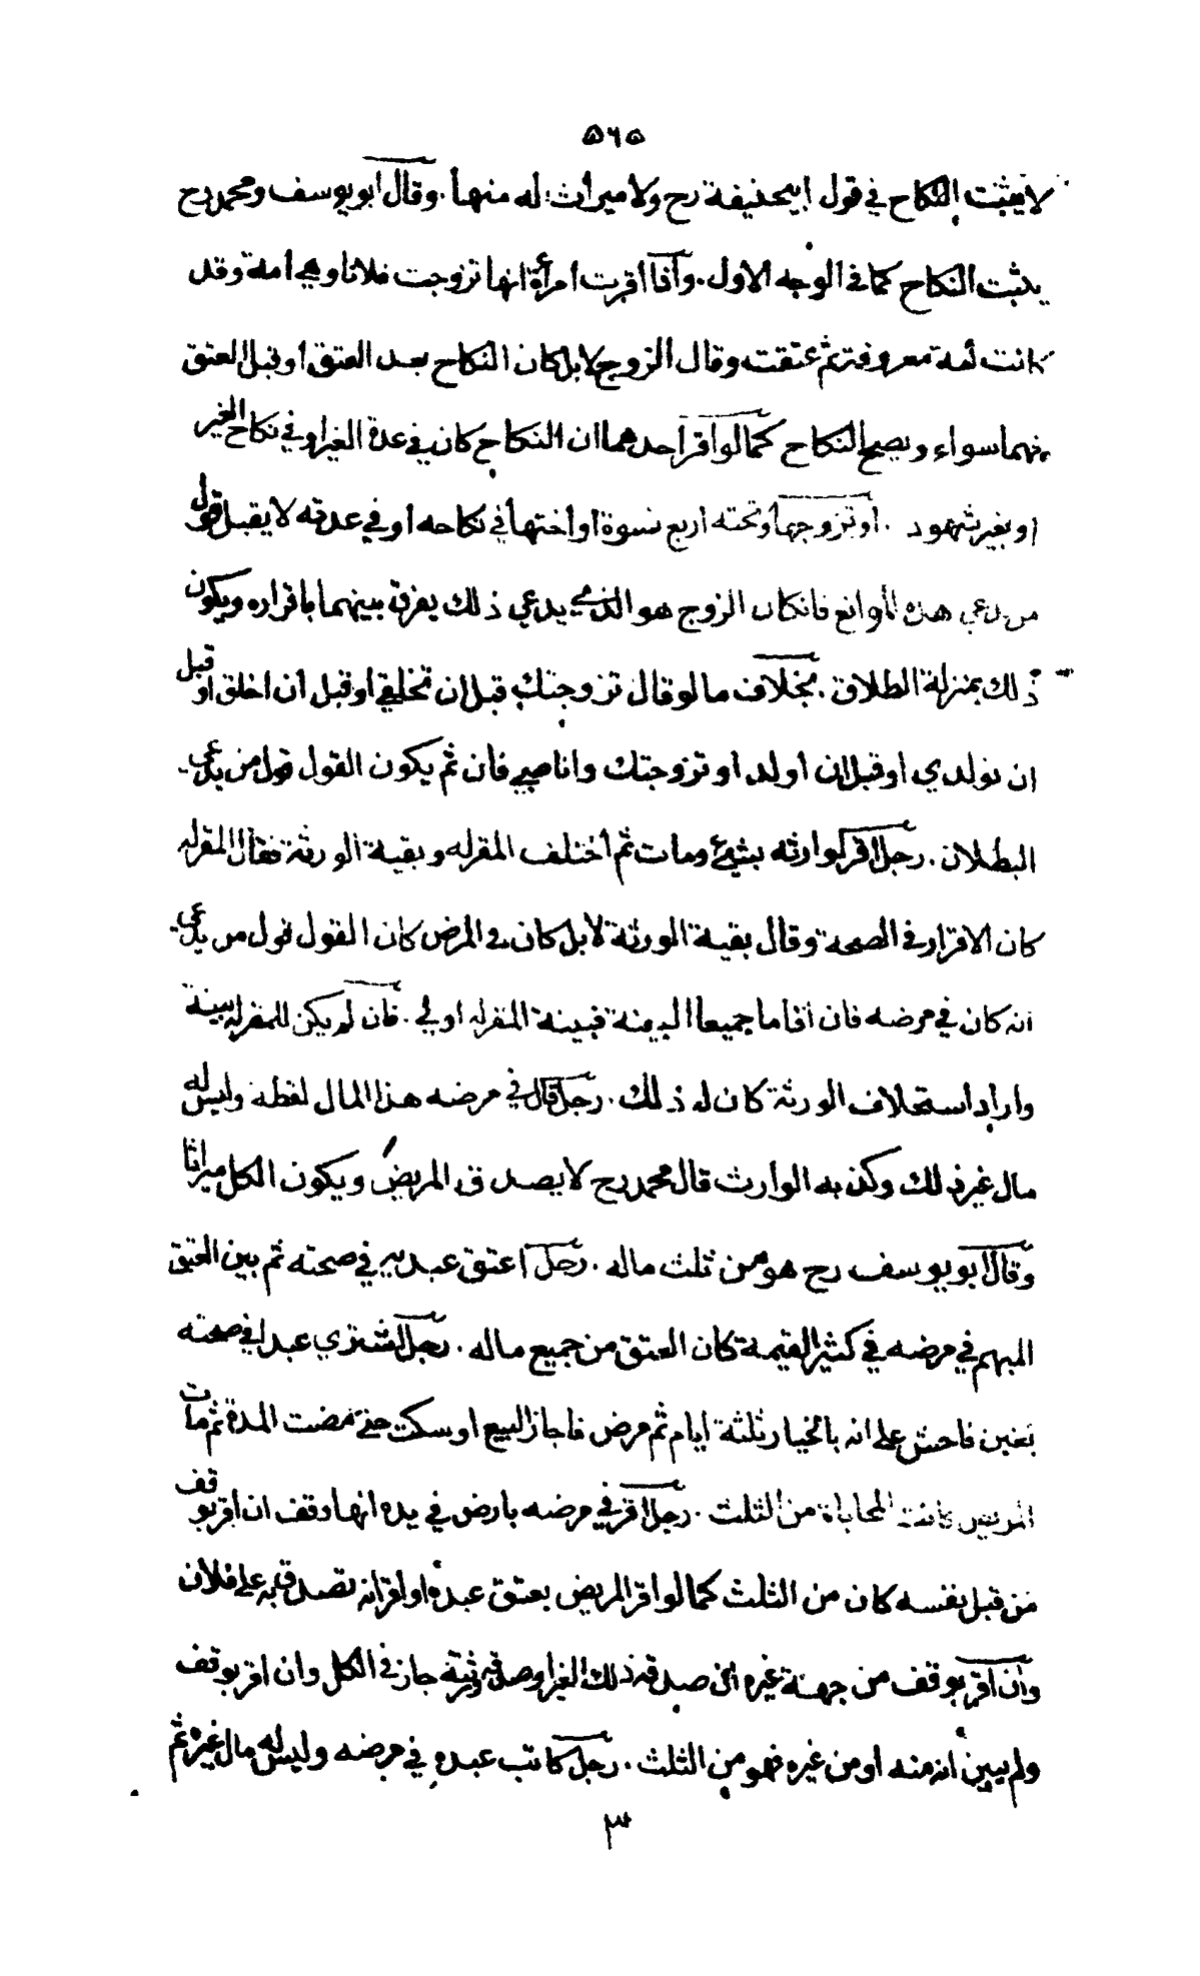 ٥٦٥
لا يثبت النكاح في قول ابيحنيفة رح ولا ميراث له منها . وقال ابو يوسف ومحمد رح
يثبت النكاح كما في الوجه الاول . واذا اقرت امرأة انها تزوجت فلانا وهي امة وقد
كانت امة معروفة ثم عتقت وقال الزوج لا بل كان النكاح بعد العتق او قبل العتق
فهما سواء ويصح النكاح كما لو اقر احدهما ان النكاح كان في عدة الغير او في نكاح الغير
او بغير شهود . او تزوجها وتحته اربع نسوة او اختها في نكاحه او في عدته لا يقبل قول
من يدعي هذه الموانع فانكان الزوج هو الذي يدعي ذلك يفرق بينهما باقراره ويكون
ذلك بمنزلة الطلاق . بخلاف ما لو قال تزوجتك قبل ان تخلقي او قبل ان اخلق او قبل
ان تولدي او قبل ان اولد او تزوجتك وانا صبي فان ثم يكون القول قول من يدعي
البطلان . رجل اقر لوارثه بشيئ ومات ثم اختلف المقر له وبقية الورثة فقال المقر له
كان الاقرار في الصحة وقال بقية الورثة لا بل كان في المرض كان القول قول من يدعي
انه كان في مرضه فان اقاما جميعا البينة فبينة المقر له اولى . فان لم يكن للمقر له بينة
واراد استحلاف الورثة كان له ذلك . رجل قال في مرضه هذا المال لقطة وليس له
مال غير ذلك وكذبه الوارث قال محمد رح لا يصدق المريض ويكون الكل ميراثا
وقال ابو يوسف رح هو من ثلث ماله . رجل اعتق عبديه في صحته ثم بين العتق
المبهم في مرضه في كثير القيمة كان العتق من جميع ماله . رجل اشترى عبدا في صحته
بغبن فاحش على انه بالخيار ثلثة ايام ثم مرض فاجاز البيع او سكت حتى مضت المدة ثم مات
المريض كانت المحاباة من الثلث . رجل اقر في مرضه بارض في يده انها وقف ان اقر بوقف
من قبل نفسه كان من الثلث كما لو اقر المريض بعتق عبده او اقر انه تصدق به على فلان
وان اقر بوقف من جهة غيره ان صدقه ذلك الغير او صدقه ورثته جاز في الكل وان اقر بوقف
ولم يبين انه منه او من غيره فهو من الثلث . رجل كاتب عبده في مرضه وليس له مال غيره ثم
٣